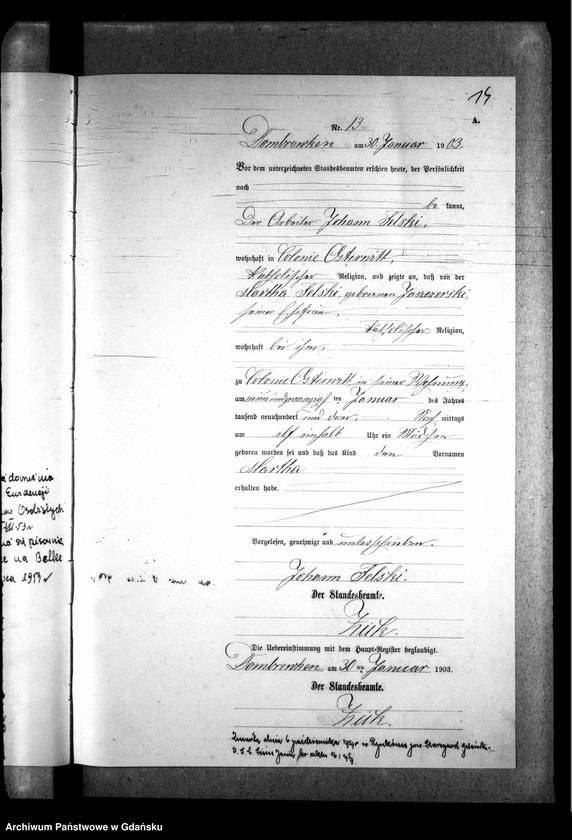 14
A.
Nr. 13.
Dombrowken am 30. Januar 1903.
Vor dem unterzeichneten Standesbeamten erschien heute, der Persönlichkeit
nach
be kannt,
Der Arbeiter Johann Felski,
wohnhaft in Colonie Osterwitt,
katholischer Religion, und zeigte an, daß von der
Martha Felski, geborenen
seiner Ehefrau,
katholischer Religion,
wohnhaft bei ihm,
zu Colonie Osterwitt in seiner Wohnung,
am neunundzwanzigsten Januar des Jahres
tausend neunhundert und drei, Nach mittags
um elf einhalb Uhr ein Mädchen
geboren worden sei und daß das Kind den Vornamen
Martha
erhalten habe.
Vorgelesen, genehmigt und unterschrieben.
Johann Felski.
Der Standesbeamte.
Die Uebereinstimmung mit dem Haupt-Register beglaubigt.
Dombrowken am 30 ten Januar 1903.
Der Standesbeamte.
Zmarła dnia 6 października
Archiwum Państwowe w Gdańsku